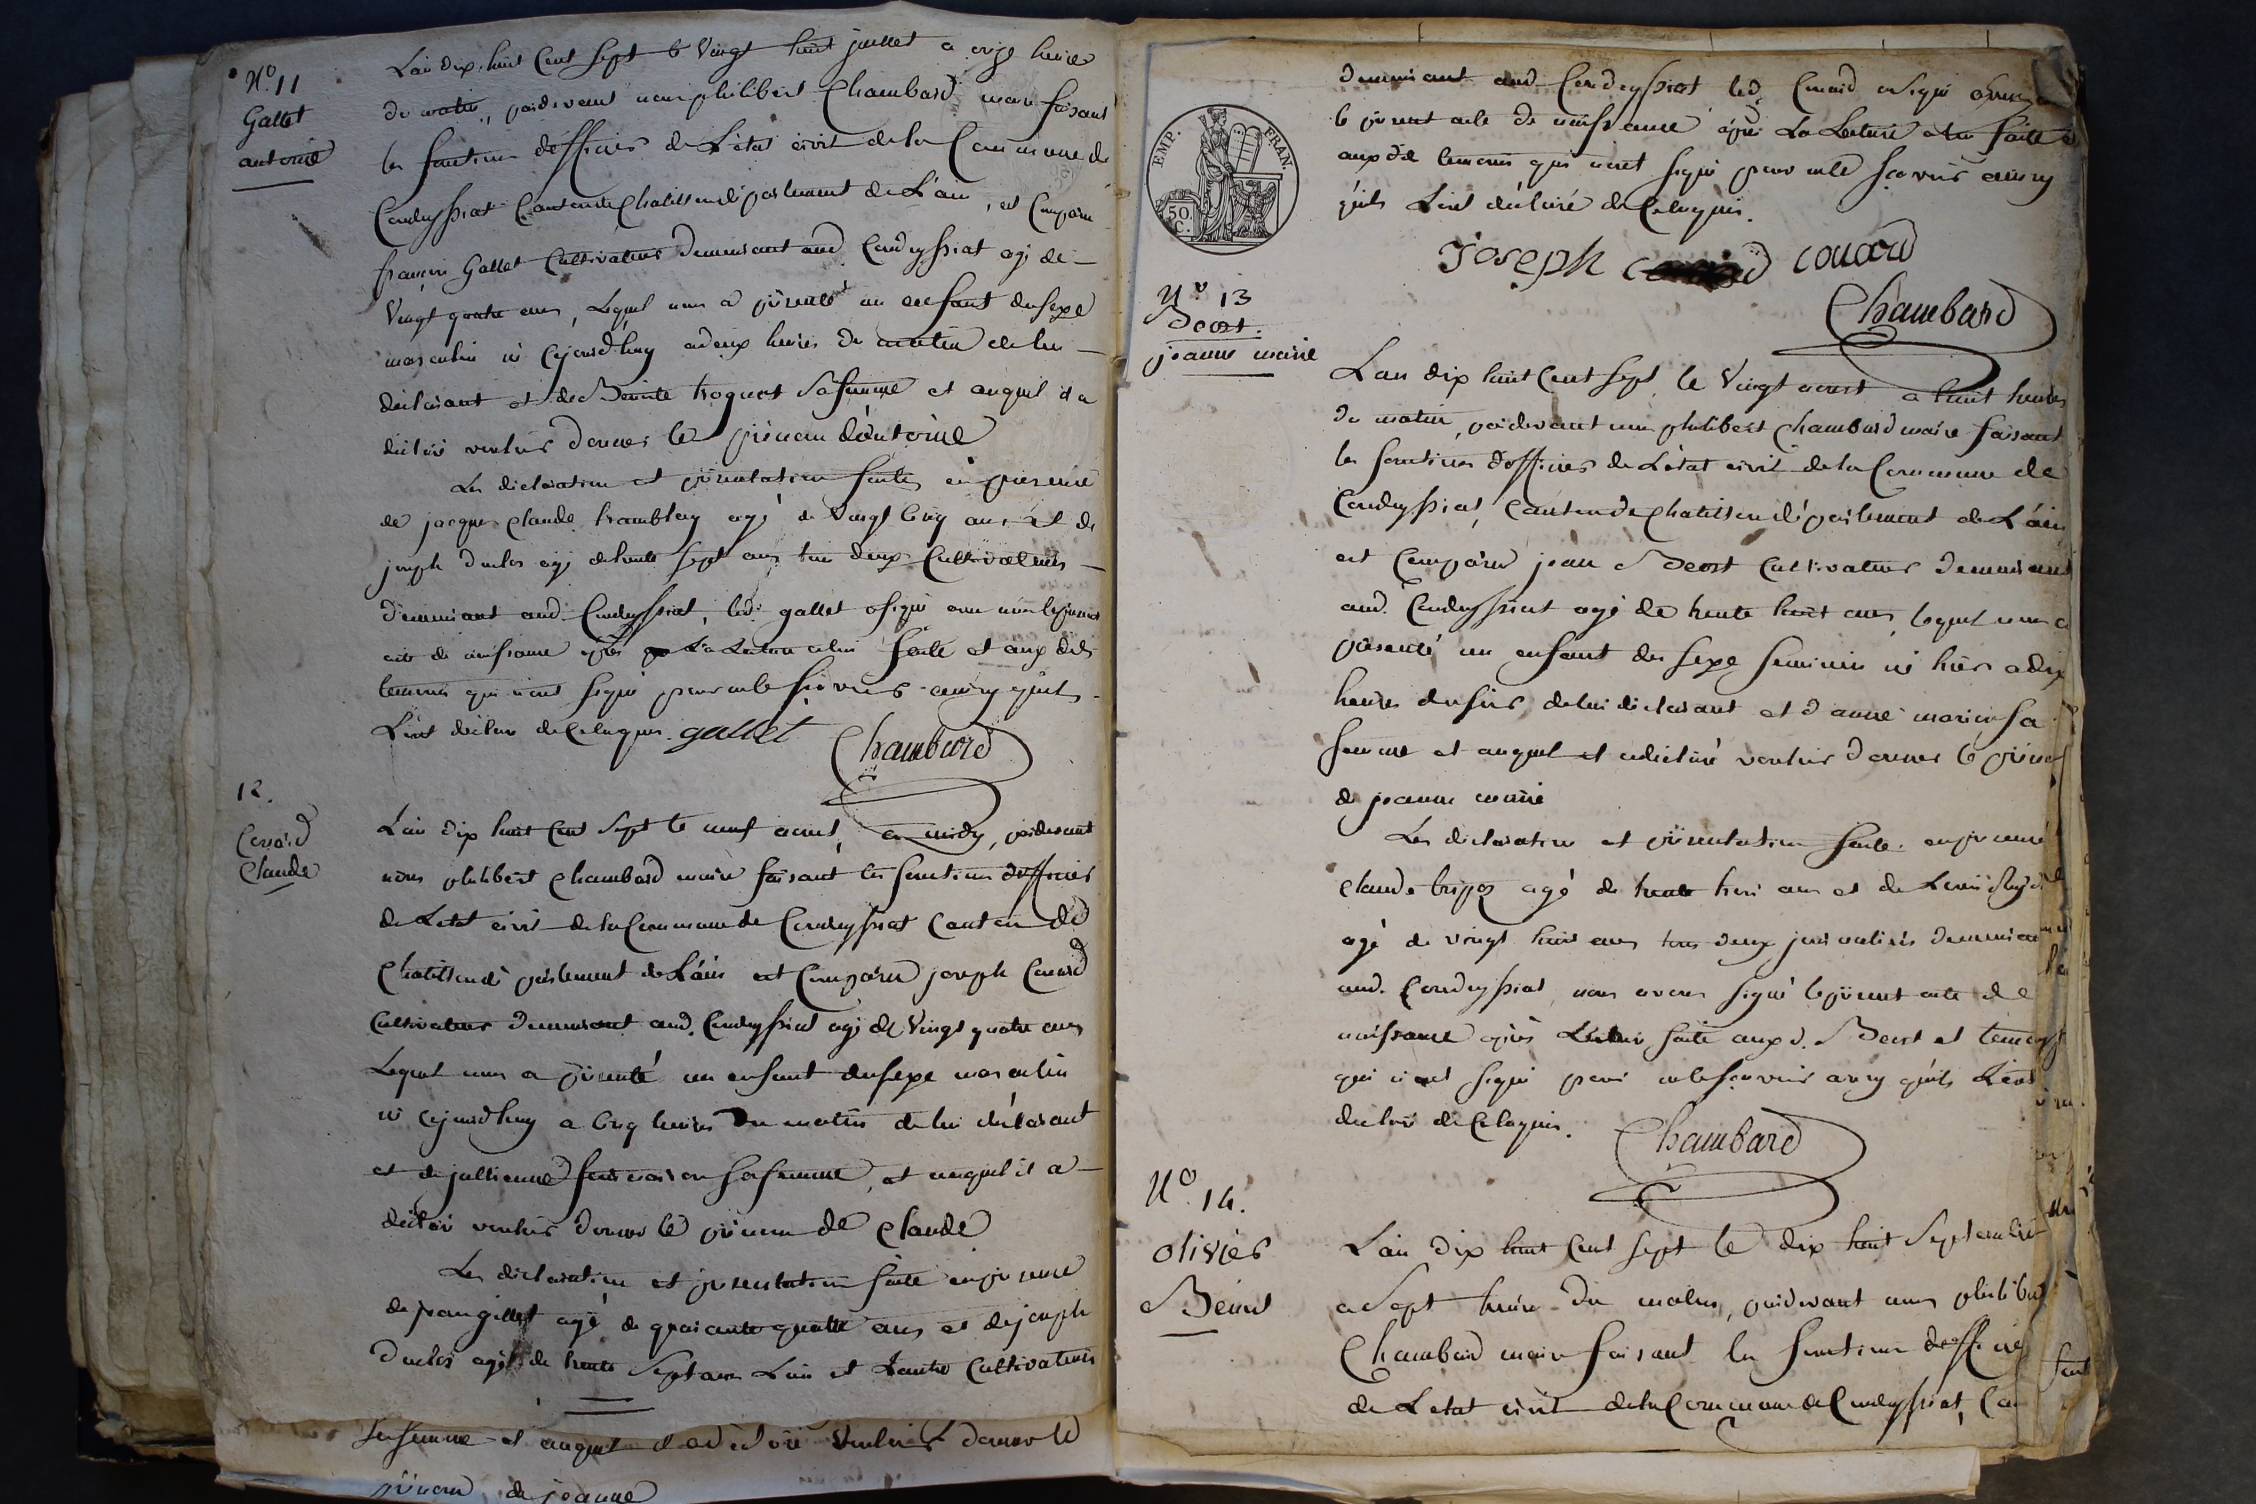 N.o 11
Gallet
antoine
L'an dix huit Cent Sept le Vingt huit juillet a onze heures
du matin, pardevant nous philibert Chambard maire faisant
les fonctions d'officier de L'etat civil de la Commune de
Condeyssiat Canton de Chatillon département de L'ain, est Comparu
françois Gallet Cultivateur demeurant aud. Condeyssiat agé de
Vingt quatre ans, Lequel nous a présenté un enfant du sexe
masculin né cejourd'huy a deux heures du matin de lui
déclarant et de Benoite troquet Sa femme et auquel il a
déclaré vouloir donner le prénom d'antoine
Les declaration et présentation faites en présence
de jacques Claude trambley agé de Vingt Cinq ans et de
joseph duclos agé de trente sept ans tous deux Cultivateurs
demeurant aud. Condeyssiat, led. gallet a signé avec nous le présent
acte de naissance après La Lecture a lui faite et aux dits
temoins qui n'ont signé pour ne le sçavoir ainsy qu'ils
L'ont déclaré de Ce Requis. gallet
Chambard
12.
Couard
Claude
L'an dix huit Cent Sept le neuf aout, a midy, pardevant
nous philibert Chambard maire faisant les fonctions d'officier
de L'etat civil de la Commune de Condeyssiat Canton de
Chatillon département de L'ain est Comparu joseph Couard
Cultivateur demeurant aud. Condeyssiat agé de Vingt quatre ans
Lequel nous a présenté un enfant du sexe masculin
né cejourd'huy a cinq heures du matin de lui déclarant
et de jullienne sa femme, et auquel il a
déclaré vouloir donner le prénom de Claude
Les declaration et presentation faite en présence
de jean gillet agé de quarante quatre ans et de joseph
duclos agé de trente Sept ans L'un et L'autre Cultivateurs
Sa femme et auquel il a déclaré vouloir donner le
prénom de jeanne
EMP. FRAN.
50.
C.
demeurant aud. Condeyssiat led. Couard a signé avec
le présent acte de naissance après La Lecture a lui faite et
aux dits temoins qui n'ont signé pour ne le sçavoir ainsy
qu'ils L'ont déclaré de Ce Requis.
Joseph couard
Chambard
N.o 13
Deost.
jeanne marie
L'an dix huit Cent Sept, le Vingt aoust a huit heures
du matin, pardevant nous philibert Chambard maire faisant
les fonctions d'officier de L'état civil de la Commune de
Condeyssiat, Canton de Chatillon département de L'ain
est Comparu jean Deost Cultivateur demeurant
aud. Condeyssiat agé de trente huit ans, lequel nous a
présenté un enfant du sexe feminin né hier a dix
heures du soir de lui déclarant et d'anne sa
femme et auquel il a déclaré vouloir donner le prénom
de jeanne marie
Les declaration et présentation faite en présence
Claude agé de trente trois ans et de Louis
agé de vingt huit ans tous deux journaliers demeurant
aud. Condeyssiat, nous avons signé le présent acte de
naissance après Lecture faite aux d. Deost et temoins
qui n'ont signé pour ne le sçavoir ainsy qu'ils L'ont
déclaré de Ce Requis.
Chambard
N.o 14.
olivier
Benoit
L'an dix huit Cent Sept le dix huit Septembre
a Sept heures du matin, pardevant nous philibert
Chambard maire faisant les fonctions d'officier
de L'etat civil de la Commune de Condeyssiat, Can